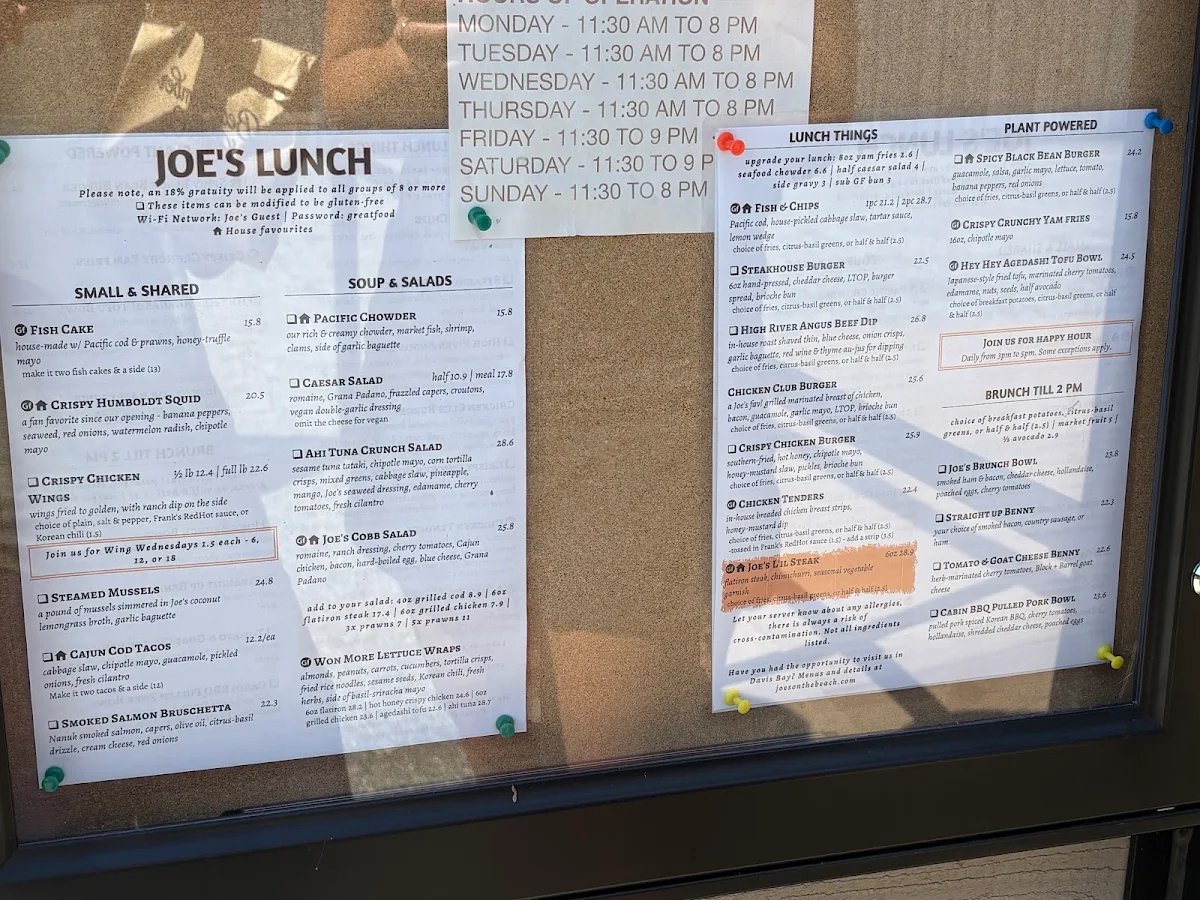 HOURS OF OPERATION
MONDAY - 11:30 AM TO 8 PM
TUESDAY - 11:30 AM TO 8 PM
WEDNESDAY - 11:30 AM TO 8 PM
THURSDAY - 11:30 AM TO 8 PM
FRIDAY - 11:30 TO 9 PM
SATURDAY - 11:30 TO 9 P
SUNDAY - 11:30 TO 8 PM
JOE'S LUNCH
Please note, an 18% gratuity will be applied to all groups of 8 or more
❏ These items can be modified to be gluten-free
Wi-Fi Network: Joe's Guest | Password: greatfood
House favourites
SMALL & SHARED
GF FISH CAKE 15.8
house-made w/ Pacific cod & prawns, honey-truffle
mayo
make it two fish cakes & a side (13)
GF CRISPY HUMBOLDT SQUID 20.5
a fan favorite since our opening - banana peppers,
seaweed, red onions, watermelon radish, chipotle
mayo
❏ CRISPY CHICKEN ½ lb 12.4 | full lb 22.6
WINGS
wings fried to golden, with ranch dip on the side
choice of plain, salt & pepper, Frank's RedHot sauce, or
Korean chili (1.5)
Join us for Wing Wednesdays 1.5 each - 6,
12, or 18
❏ STEAMED MUSSELS 24.8
a pound of mussels simmered in Joe's coconut
lemongrass broth, garlic baguette
❏ CAJUN COD TACOS 12.2/ea
cabbage slaw, chipotle mayo, guacamole, pickled
onions, fresh cilantro
Make it two tacos & a side (12)
❏ SMOKED SALMON BRUSCHETTA 22.3
Nanuk smoked salmon, capers, olive oil, citrus-basil
drizzle, cream cheese, red onions
SOUP & SALADS
❏ PACIFIC CHOWDER 15.8
our rich & creamy chowder, market fish, shrimp,
clams, side of garlic baguette
❏ CAESAR SALAD half 10.9 | meal 17.8
romaine, Grana Padano, frazzled capers, croutons,
vegan double-garlic dressing
omit the cheese for vegan
❏ AHI TUNA CRUNCH SALAD 28.6
sesame tuna tataki, chipotle mayo, corn tortilla
crisps, mixed greens, cabbage slaw, pineapple,
mango, Joe's seaweed dressing, edamame, cherry
tomatoes, fresh cilantro
GF JOE'S COBB SALAD 25.8
romaine, ranch dressing, cherry tomatoes, Cajun
chicken, bacon, hard-boiled egg, blue cheese, Grana
Padano
add to your salad: 4oz grilled cod 8.9 | 6oz
flatiron steak 17.4 | 6oz grilled chicken 7.9 |
3x prawns 7 | 5x prawns 11
GF WON MORE LETTUCE WRAPS
almonds, peanuts, carrots, cucumbers, tortilla crisps,
fried rice noodles, sesame seeds, Korean chili, fresh
herbs, side of basil-sriracha mayo
6oz flatiron 28.2 | hot honey crispy chicken 24.6 | 6oz
grilled chicken 23.6 | agedashi tofu 22.6 | ahi tuna 28.7
LUNCH THINGS
upgrade your lunch: 8oz yam fries 2.6 |
seafood chowder 6.6 | half caesar salad 4 |
side gravy 3 | sub GF bun 3
GF FISH & CHIPS 1pc 21.2 | 2pc 28.7
Pacific cod, house-pickled cabbage slaw, tartar sauce,
lemon wedge
choice of fries, citrus-basil greens, or half & half (2.5)
❏ STEAKHOUSE BURGER 22.5
6oz hand-pressed, cheddar cheese, LTOP, burger
spread, brioche bun
choice of fries, citrus-basil greens, or half & half (2.5)
❏ HIGH RIVER ANGUS BEEF DIP 26.8
in-house roast shaved thin, blue cheese, onion crisps,
garlic baguette, red wine & thyme au-jus for dipping
choice of fries, citrus-basil greens, or half & half (2.5)
CHICKEN CLUB BURGER 25.6
a Joe's fav! grilled marinated breast of chicken,
bacon, guacamole, garlic mayo, LTOP, brioche bun
choice of fries, citrus-basil greens, or half & half (2.5)
❏ CRISPY CHICKEN BURGER 25.9
southern-fried, hot honey, chipotle mayo,
honey-mustard slaw, pickles, brioche bun
choice of fries, citrus-basil greens, or half & half (2.5)
GF CHICKEN TENDERS 22.4
in-house breaded chicken breast strips,
honey-mustard dip
choice of fries, citrus-basil greens, or half & half (2.5)
-tossed in Frank's RedHot sauce (1.5) - add a strip (3.5)
GF JOE'S L'IL STEAK 6oz 28.9
flatiron steak, chimichurri, seasonal vegetable
garnish
choice of fries, citrus-basil greens, or half & half (2.5)
Let your server know about any allergies,
there is always a risk of
cross-contamination. Not all ingredients
listed.
Have you had the opportunity to visit us in
Davis Bay? Menus and details at
joesonthebeach.com
PLANT POWERED
❏ SPICY BLACK BEAN BURGER 24.2
guacamole, salsa, garlic mayo, lettuce, tomato,
banana peppers, red onions
choice of fries, citrus-basil greens, or half & half (2.5)
GF CRISPY CRUNCHY YAM FRIES 15.8
16oz, chipotle mayo
GF HEY HEY AGEDASHI TOFU BOWL 24.5
Japanese-style fried tofu, marinated cherry tomatoes,
edamame, nuts, seeds, half avocado
choice of breakfast potatoes, citrus-basil greens, or half
& half (2.5)
JOIN US FOR HAPPY HOUR
Daily from 3pm to 5pm. Some exceptions apply.
BRUNCH TILL 2 PM
choice of breakfast potatoes, citrus-basil
greens, or half & half (2.5) | market fruit 5 |
½ avocado 2.9
❏ JOE'S BRUNCH BOWL 23.8
smoked ham & bacon, cheddar cheese, hollandaise,
poached eggs, cherry tomatoes
❏ STRAIGHT UP BENNY 22.3
your choice of smoked bacon, country sausage, or
ham
❏ TOMATO & GOAT CHEESE BENNY 22.6
herb-marinated cherry tomatoes, Block + Barrel goat
cheese
❏ CABIN BBQ PULLED PORK BOWL 23.6
pulled pork spiced Korean BBQ, cherry tomatoes,
hollandaise, shredded cheddar cheese, poached eggs